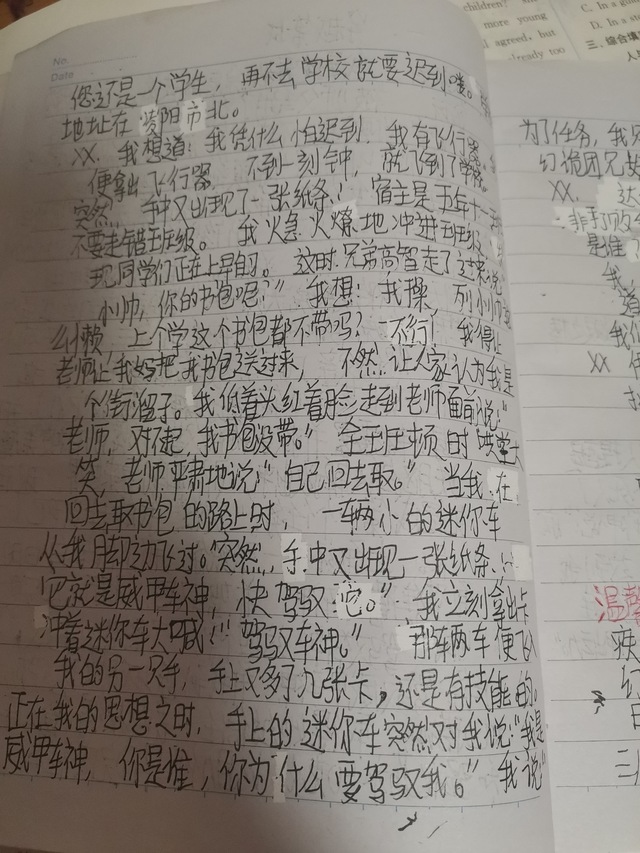 No.
Date
您还是一个学生，再不去学校就要迟到喽。
地址在 市北。
XX. 我想道：我凭什么怕迟到，我有飞行器，
便拿出飞行器，不到一刻钟，就飞到了学校。
突然，手中又出现了一张纸条：宿主是五年十一
不要走错班级。我火急火燎地冲进班级，
现同学们正在上早自习。这时，兄弟高智走了过来，说
小帅，你的书包呢？”我想：我操，列小帅
么懒，上个学这个书包都不带吗？不行，我得让
老师让我妈把我书包送过来，不然，让人家认为我是
个街溜子。我低着头红着脸，走到老师面前说：“
老师，对不起，我书包没带。”全班顿时哄堂大
笑，老师严肃地说：“自己回去取。”当我在
回去取书包的路上时，一辆小的迷你车
从我脚边飞过。突然，手中又出现一张纸条：“
它就是威甲车神，快驾驭它。”我立刻拿出卡
冲着迷你车大喊：“驾驭车神。”那辆车便飞入
我的另一只手，手上又多了九张卡，还是有技能的。
正在我的思想之时，手上的迷你车突然对我说：“我是
威甲车神，你是谁，你为什么要驾驭我。”我说“
为了任务，我只
幻诡团兄
XX.
非打败
是谁
我
我们
XX
温馨
疾
children? and
more young
agreed, but
already too
C. In a
D. In a
三、综合填